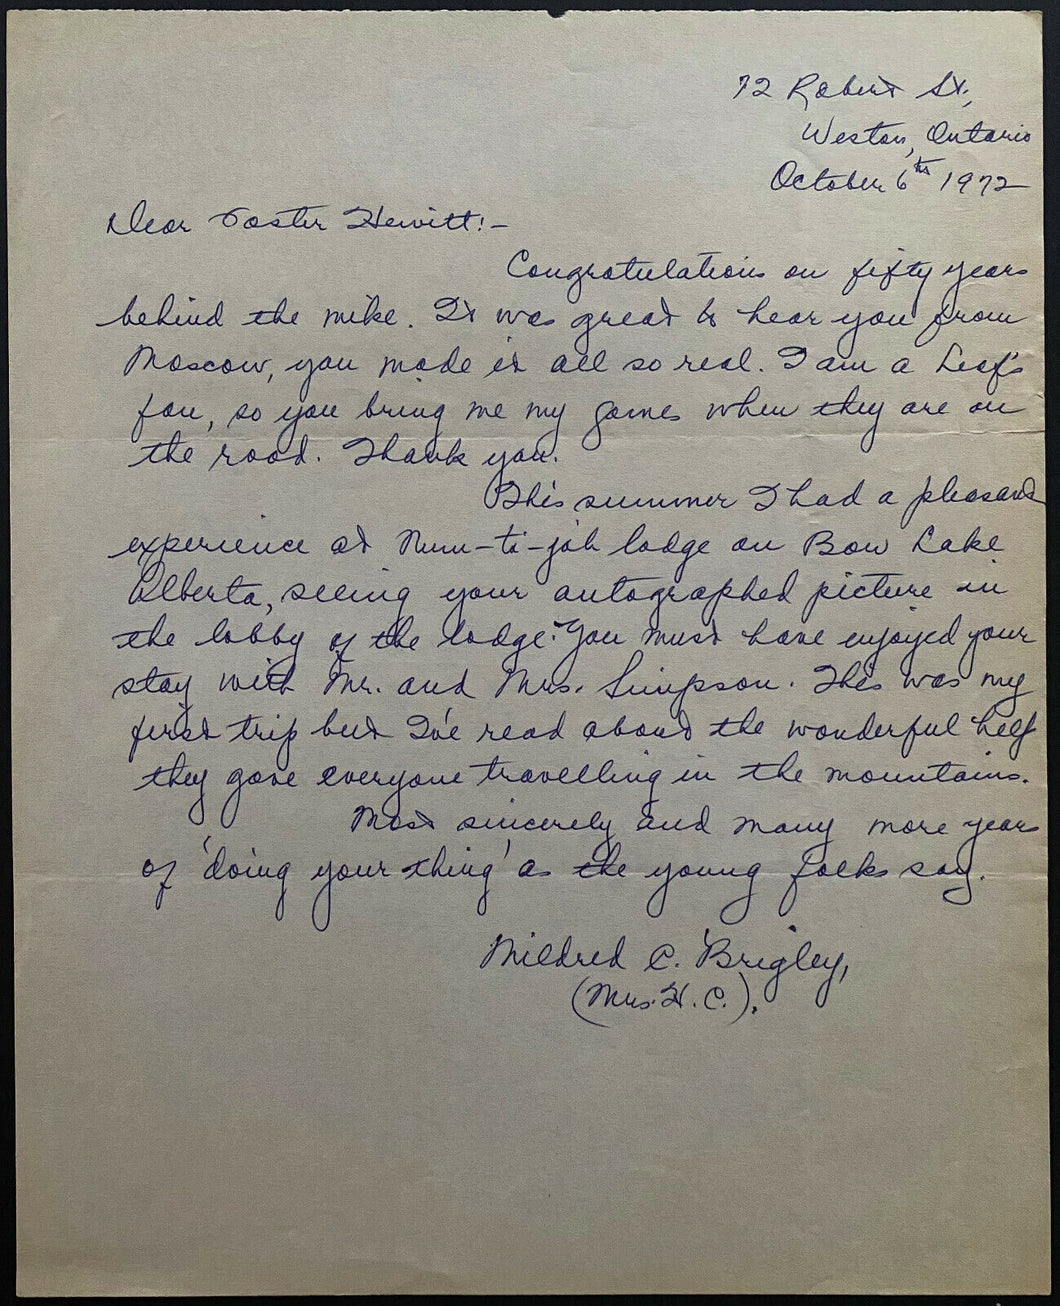 72 Robert St.,
Weston, Ontario
October 6th 1972
Dear Foster Hewitt:-
Congratulations on fifty years
behind the mike. It was great to hear you from
Moscow, you made it all so real. I am a Leafs
fan, so you bring me my games when they are on
the road. Thank you.
This summer I had a pleasant
experience at Num-ti-jah lodge on Bow Lake
Alberta, seeing your autographed picture in
the lobby of the lodge. You must have enjoyed your
stay with Mr. and Mrs. Simpson. This was my
first trip but I've read about the wonderful help
they gave everyone travelling in the mountains.
Most sincerely and many more years
of 'doing your thing' as the young folks say.
Mildred C. Brigley,
(Mrs. H. C.).